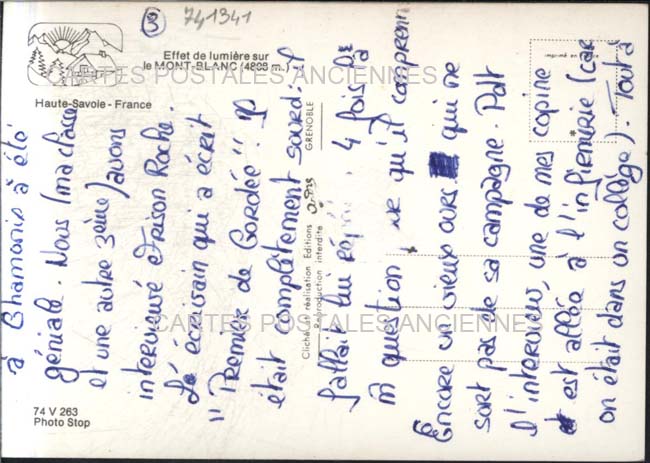 ③ 741341
Effet de lumière sur
le MONT-BLANC (4808 m.)
Haute-Savoie - France
74 V 263
Photo Stop
Clichés et réalisation Editions
Reproduction interdite
GRENOBLE
CARTES POSTALES ANCIENNES
CARTES POSTALES ANCIENNES
à Chamonix à été
génial. Nous (ma classe
et une autre 3ème) avons
interviewé Frison Roche.
Lé écrivain qui a écrit
"Premier de Cordée". Il
était complètement sourd: il
fallait lui 4 fois la
m question qu'il comprenn
Encore un vieux ours qui ne
sort pas de sa campagne. Pdt
l'interview, une de mes copine
est allée à l'infirmerie (car
on était dans un collège). Tout à